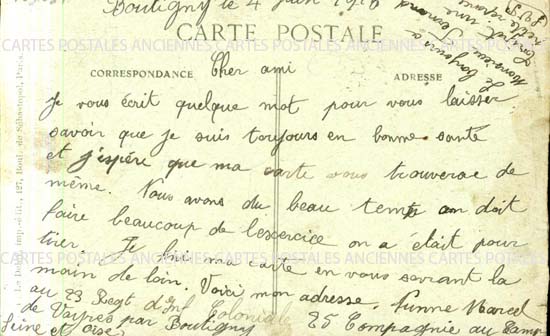 Boutigny le 4 juin 1916
CARTE POSTALE
CARTES POSTALES ANCIENNES CARTES POSTALES ANCIENNES CARTES POSTALES
CORRESPONDANCE
ADRESSE
Cher ami
je vous écrit quelque mot pour vous laisser
savoir que je suis toujours en bonne santé
et j'espère que ma carte vous trouverae de
même. Nous avons du beau temp on doit
faire beaucoup de lexercice on a était pour
tirer. Je fini ma carte en vous serrant la
main de loin. Voici mon adresse. Marcel
au 23 Regt d'Inf Coloniale 25 Compagnie au Camp
de par Boutigny
Seine et Oise
Le bonjour a
Monsieur
127, Boul. de Sébastopol, Paris